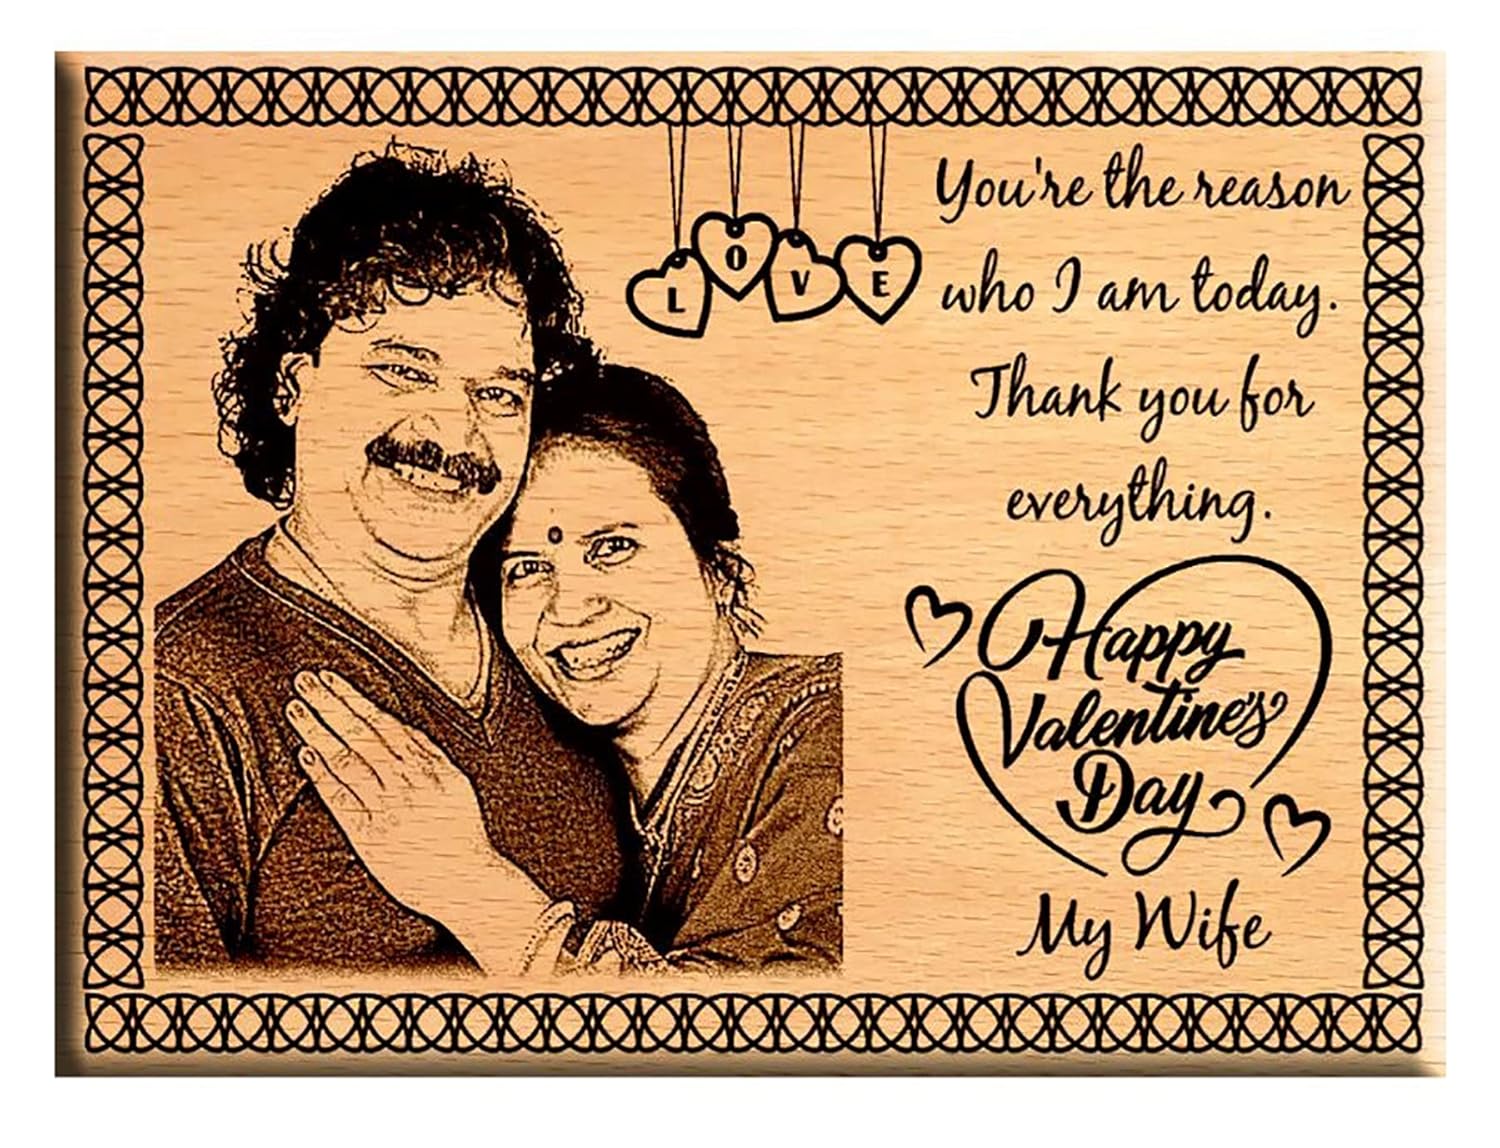 LOVE
You're the reason
who I am today.
Thank you for
everything.
Happy
Valentine's
Day
My Wife